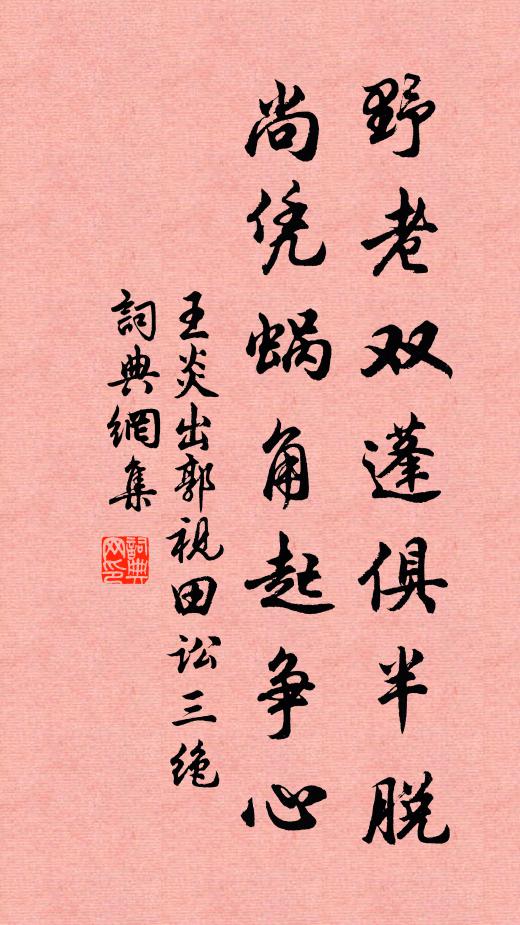 野老双蓬俱半脱
尚凭蜗角起争心
王炎出郭视田讼三绝
詞典網集
詞典
网印